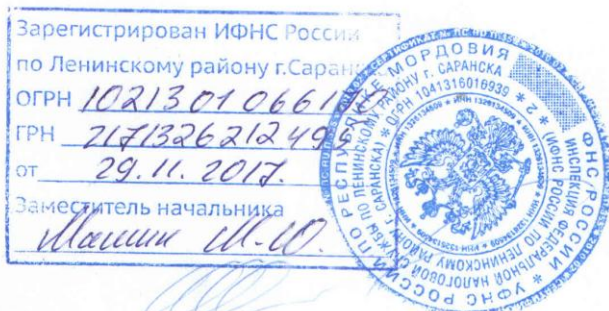 Зарегистрирован ИФНС России
по Ленинскому району г.Саранс
ОГРН 102130106617
ГРН 2171326212495
от 29.11.2017.
Заместитель начальника
М.Ю.
ФНС РОССИИ * УФНС РОССИИ ПО РЕСПУБЛИКЕ МОРДОВИЯ
ИНСПЕКЦИЯ ФЕДЕРАЛЬНОЙ НАЛОГОВОЙ СЛУЖБЫ ПО ЛЕНИНСКОМУ РАЙОНУ Г. САРАНСКА
(ИФНС РОССИИ ПО ЛЕНИНСКОМУ РАЙОНУ Г. САРАНСКА) * ОГРН 1041316016939 * 2 *